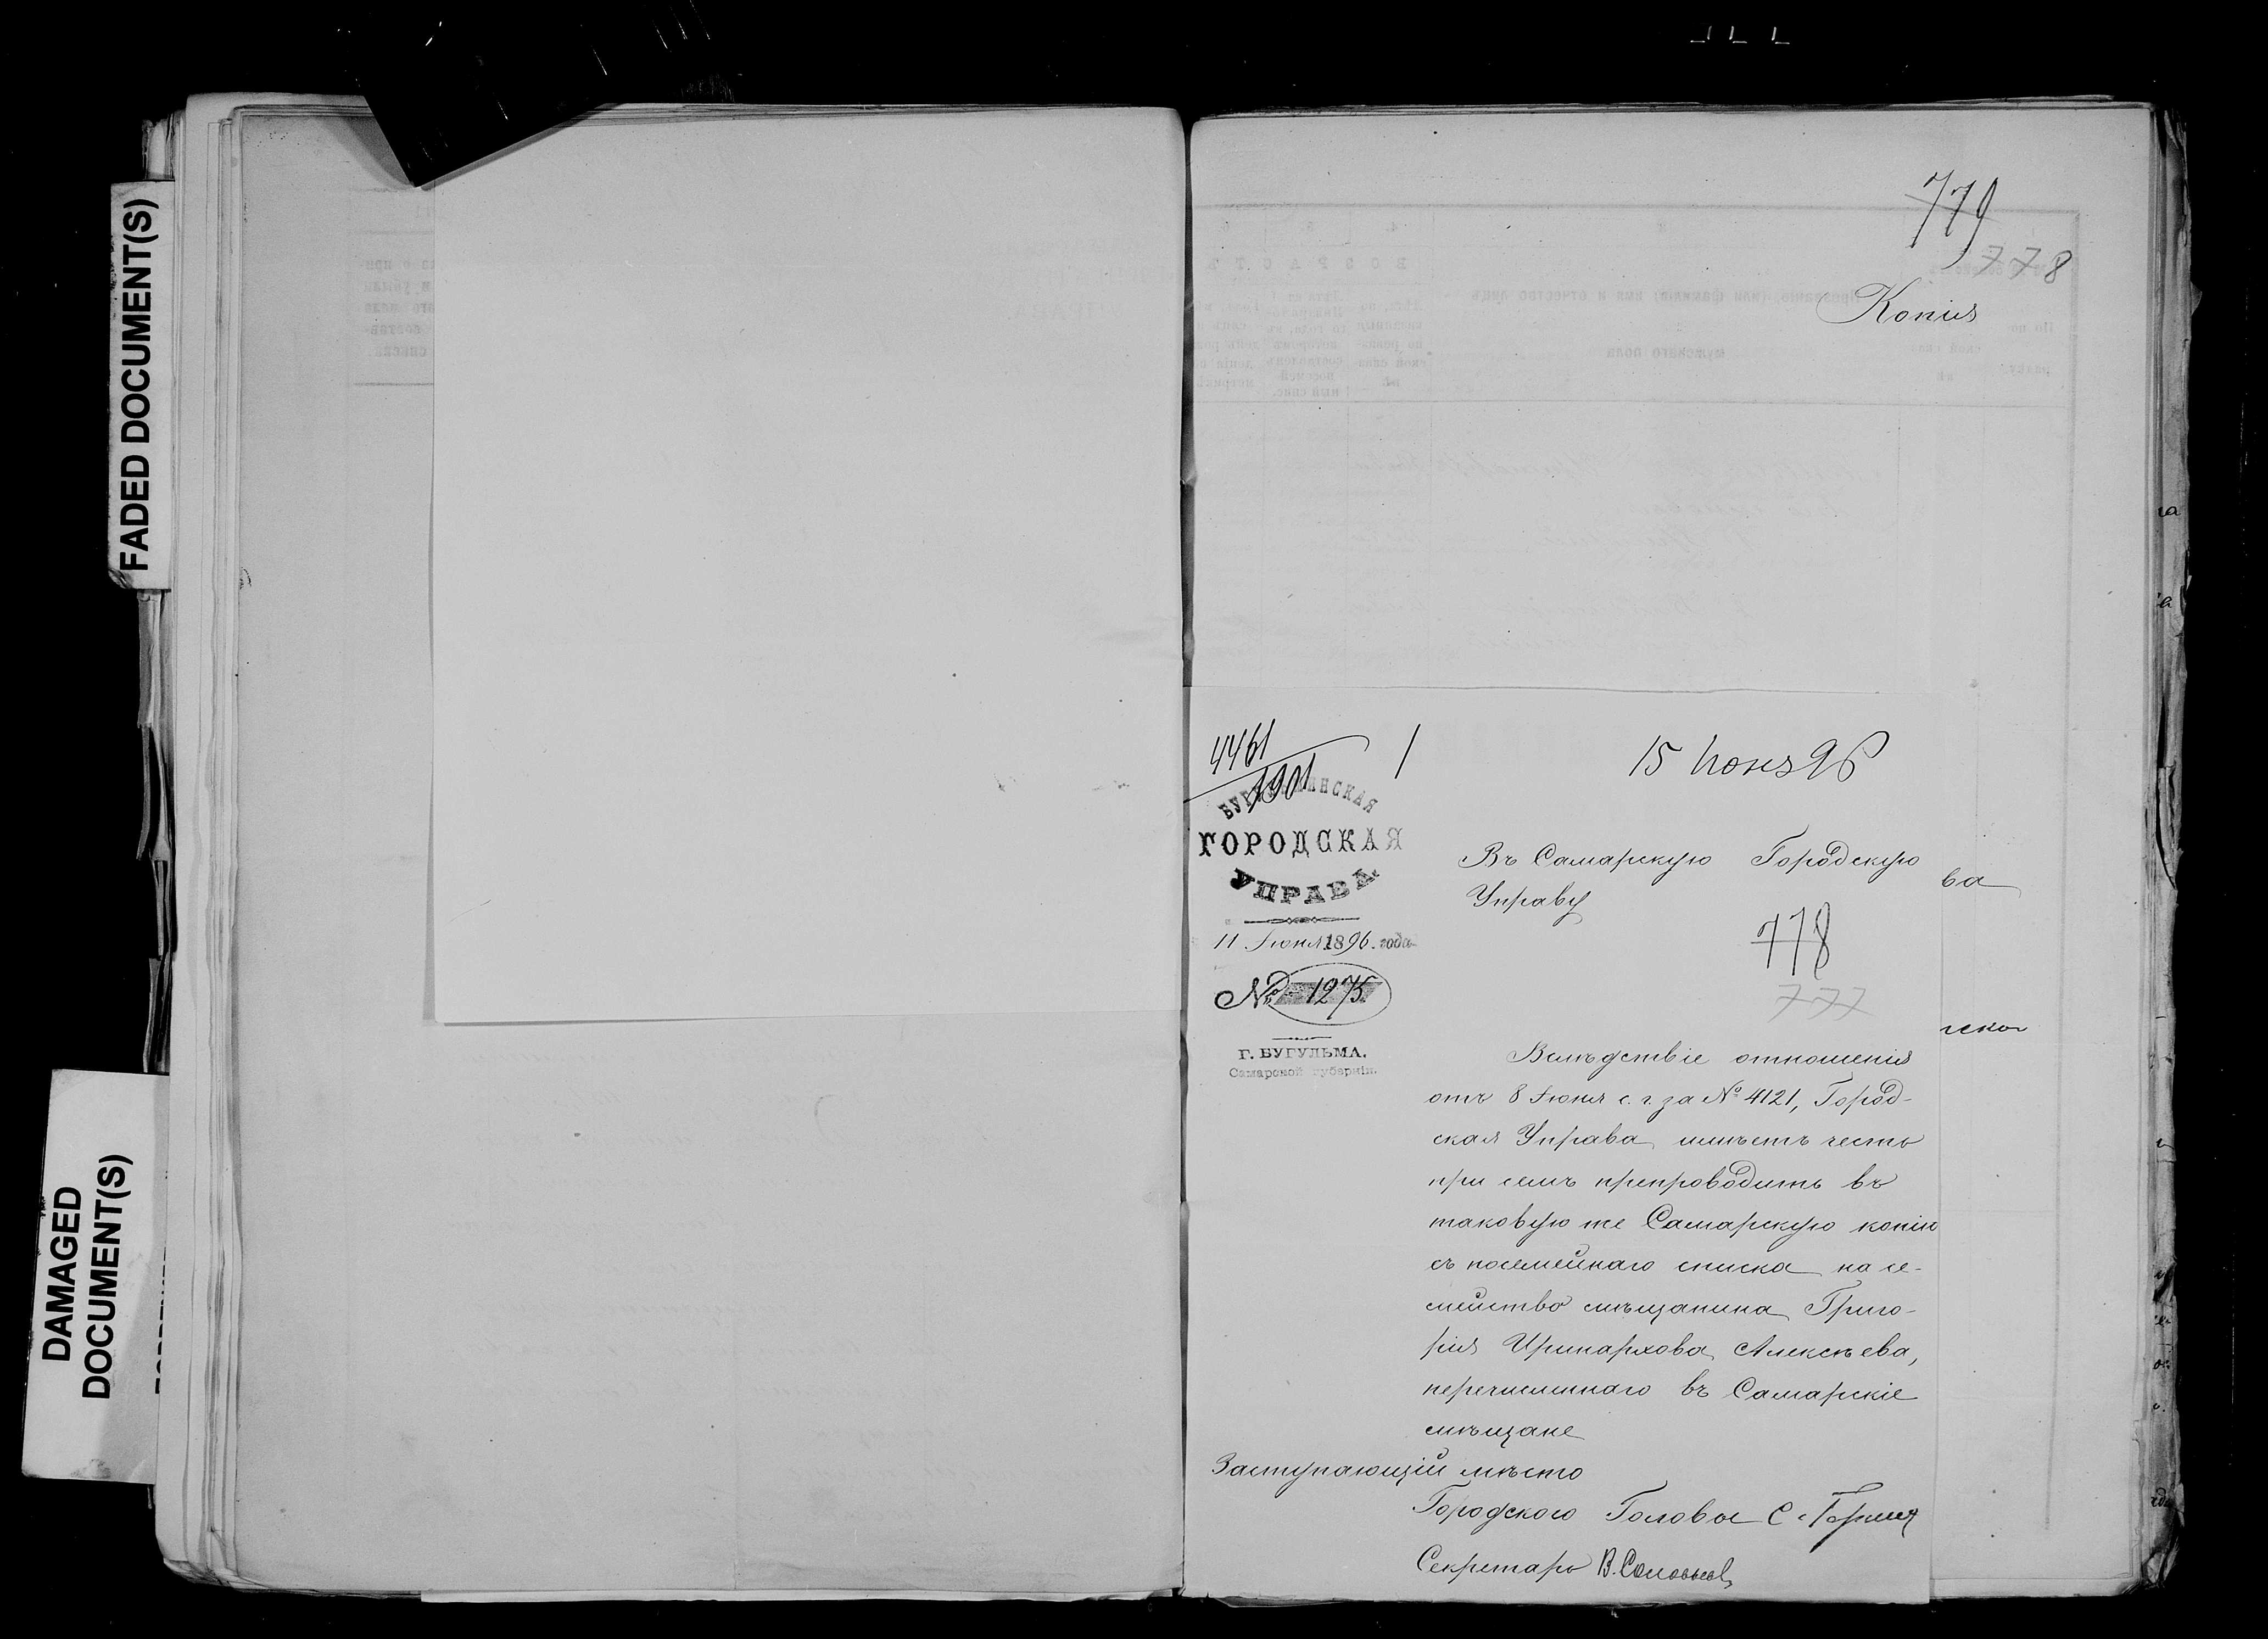 FADED DOCUMENT(S)
DAMAGED
DOCUMENT(S)
779
778
Копія
4461
1901
1
15 Июня 96
БУГУЛЬМИНСКАЯ
ГОРОДСКАЯ
УПРАВА.
11 Іюня 1896 года
№ 1275
Г. БУГУЛЬМА.
Самарской губерніи.
Въ Самарскую Городскую
Управу
778
777
Вслѣдствіе отношенія
отъ 8 Іюня с. г. за № 4121, Город-
ская Управа имѣетъ честь
при семъ препроводить въ
таковую же Самарскую копію
съ посемейнаго списка на се-
мейство мѣщанина Григо-
рія Иринархова Алексѣева,
перечисленнаго въ Самарскіе
мѣщане
Заступающій мѣсто
Городского Головы С.
Секретарь В. Соловьев
ва